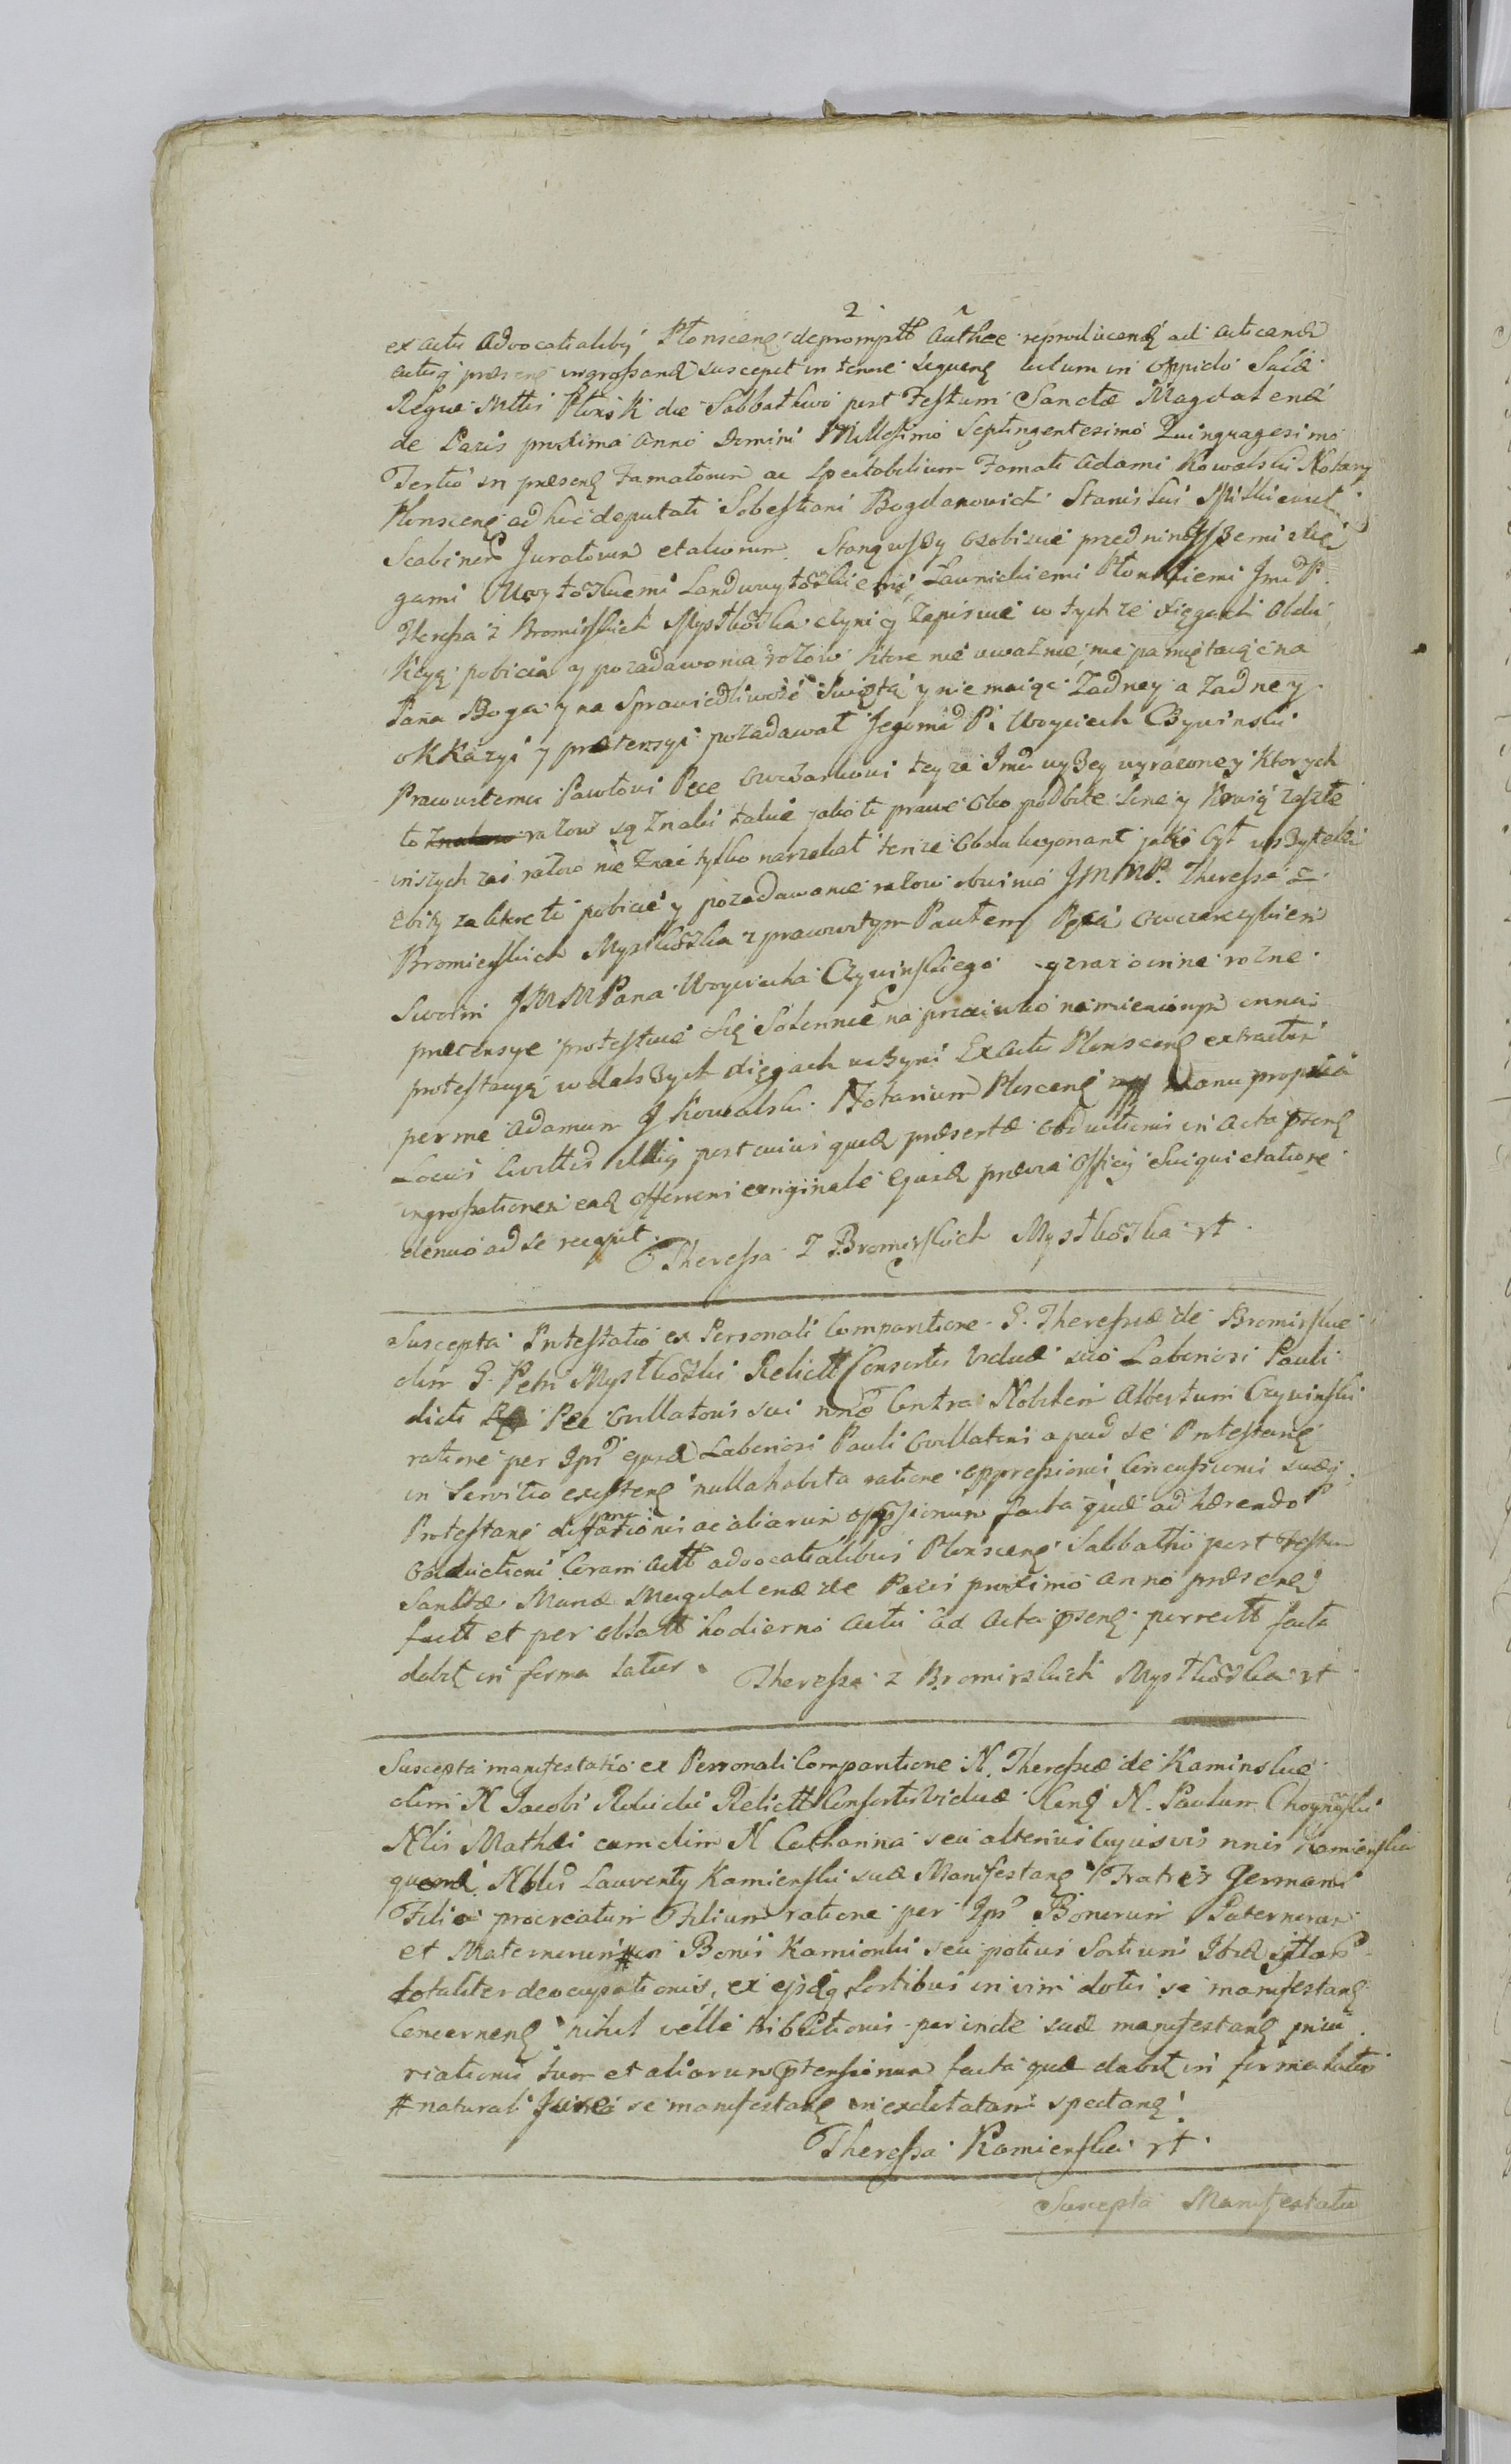 2 1
ex actis Advocatialibus Plonscens depromptt authce reproducend ad acticand
actisq praesens ingrossand suscepit in tenore sequens actum in Oppido Sacrae
Regiae Mttis Płonsk die Sabbathivo post Festum Sanctae Magdalenae
de Pazis proxima Anno Domini Millesimo Septingentesimo Quinquagesimo
Tertio in praesens Famatorum ac Spectabilium Famati Adami Kowalski Notary
Plonscens ad hoc deputati Sobestiani Bogdanowicz Stanislai
Scabinor Juratorum et aliorum. Stanąwszy osobiscie przed ninieyszemi xię
gami Woytoskiemi Landwoytoskiemi Ławnickiemi Płonskiemi Jmć P.
Theressa z Bromirskich Mystkoska czyni y zapisuie w tychze xięgach Obdu
kcyą pobicia y pozadawania razow, ktore nie uwaznie, nie pamiętaiąc na
Pana Boga y na Sprawiedliwość Swiętą y nie maiąc Zadney a Zadney
okkazyi y praetensyi pozadawał Jegomć P. Woyciech Czywinski
Prawowitemu Pawłowi Pece Owczarkowi teyze Jmci wyszey wyrazoney ktorych
to razow są Znaki takie jako to prawe Oko podbite sine y krwią zaszłe
inszych zas razow nie Znac tylko narzekał tenze Obdukcyonant jako był wszytek
zbity za ktore to pobicie y pozadawanie razow obwinia JMMP. Theressa z
Bromirskich Mystkoska z prawowitym Pawłem Pęcą owczarczykiem
Swoim JMMPana Woyciecha Czywinskiego y zaraz o inne rozne
pretensye protestuie się Solennie na przeciwko namienionym innu
protestacyą w dalszych xięgach uczyni Ex Actis Plonscens extractum
per me Adamum J Kowalski Notarium Plosceng manu propria
Locus Civittis Sigilli post cuius quid praesertae Obductionis in Acta praesens
ingrossationem ead offerens originale ejusd praevia Officy Sui quietatione
denuo ad se recepit.
Theressa Z Bromirskich Mystkoska rt

Suscepta Protestatio ex Personali Comparitione G. Theressiae de Bromirskie
olim G. Petri Mystkoski Relictt Consortis Viduae suo Laboriosi Pauli
dicti Pec Ovillatoris sui nnoe Contra Nobilem Albertum Czywinski
ratione per Ips ejusd Laboriosi Pauli Ovillatoris apud se Protestans
in Servitio existens nulla habita ratione oppressionis Concussionis suaeq
Protestans diffamationis ac aliarum offensionum facta quae adhaerendo
Obductioni Coram Actt advocatialibus Plonscens Sabbatho post Festum
Sanctae Mariae Magdalenae de Pazis proximo anno praesens
factt et per oblatt hodierno actu ad Acta praesens porrectt facta
dabit in forma latius. Theressa z Bromirskich Mystkoska rt

Suscepta manifestatio ex Personali Comparitione N. Theressiae de Kaminskie
olim N Jacobi Relictt Consortis Viduae Contra N. Paulum Choynoski
Nlis Mathei cum olim N Catharina seu alterius cujusvis nnis Kamienska
quond Nblis Laurenty Kamienski suae Manifestans Fratris Germani
Filia procreatum Filium ratione per Ips Bonorum Paternorum
et Maternorum # in Bonis Kamionki seu potius Sortium Ibid
totaliter deoccupationis, ex ejsdq Sortibus in vim dotis se manifestans
Concernens nihil velle tributionis perinde suae manifestans iniu
riationis tum et aliarum ptensionum facta quae dabit in forma latius
# naturali Jure se manifestans in exdotatam spectans
Theressa Kamienska rt

Suscepta Manifestatio